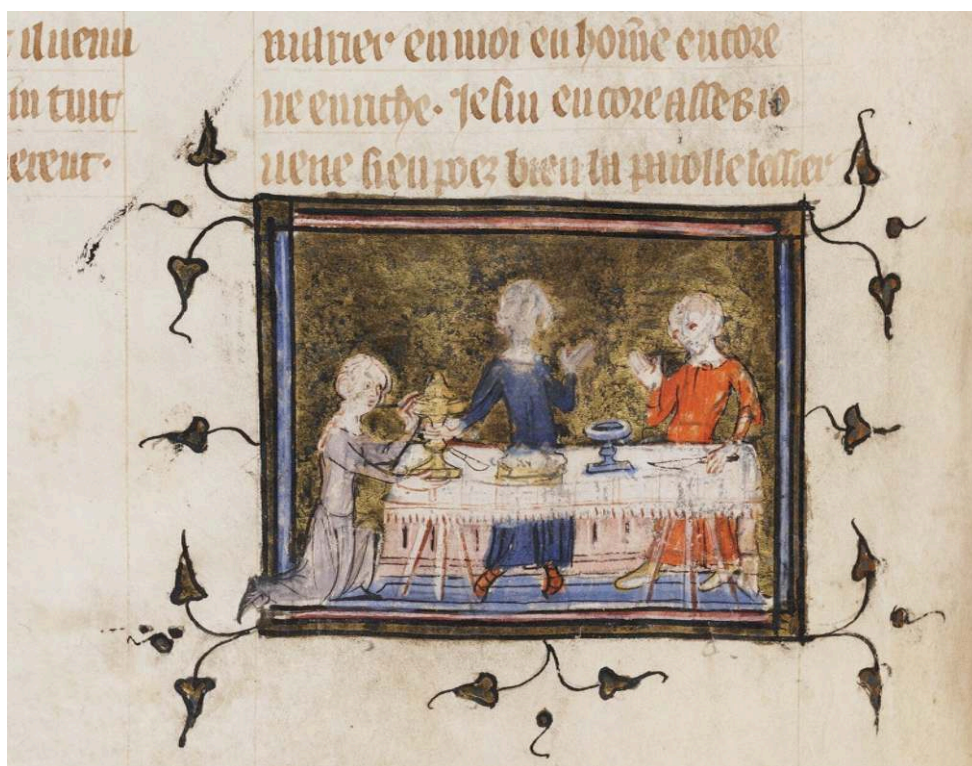 il uenu
tuit
erent·
marier en moi en hom̄e encore
ne en riche· Je sui encore asses io
uene si en poez bien la parolle lessier